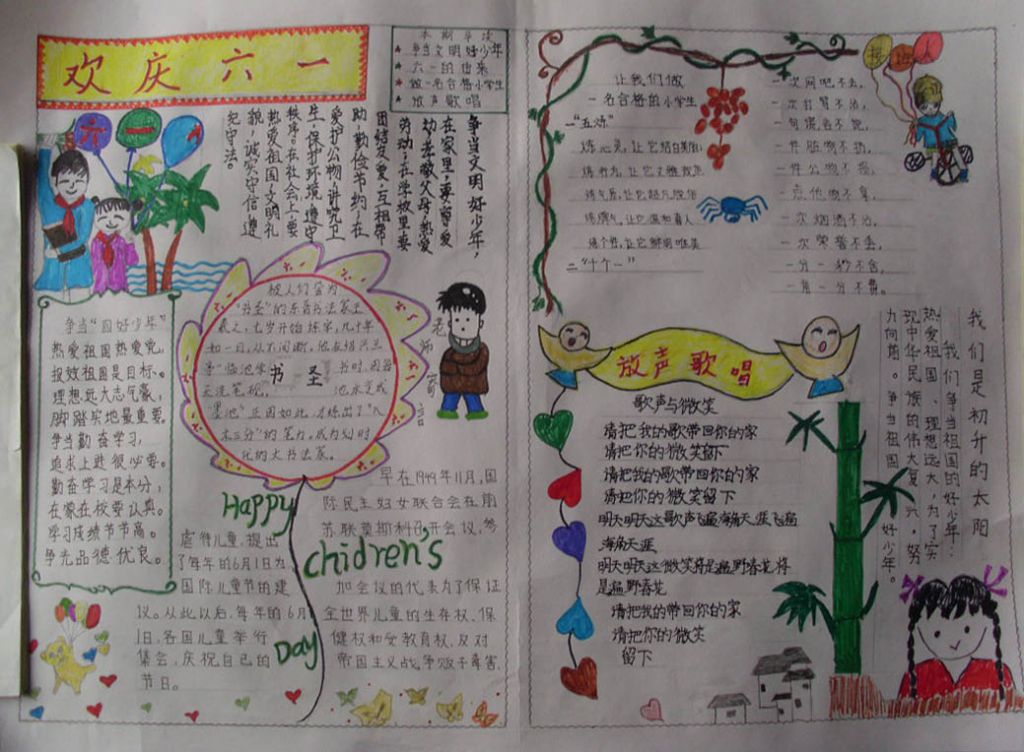 欢庆六一
本期导读
争当文明好少年
六一的由来
做一名合格小学生
放声歌唱
六
一
争当文明好少年，
在家里，要尊爱
幼，孝敬父母，热爱
劳动；在学校里要
团结友爱，互相帮
助，勤俭节约；在
爱护公物，讲究卫
生，保护环境，遵守
秩序；在社会上，要
热爱祖国，文明礼
貌，诚实守信，遵
纪守法。
争当“国好少年”
热爱祖国热爱党，
报效祖国是目标。
理想远大志气豪，
脚踏实地最重要。
争当勤奋学习，
追求上进很必要。
勤奋学习是本分，
在家在校要认真。
学习成绩节节高。
争先品德优良。
被人们誉为
“书圣”的东晋书法家王
羲之，七岁开始练字，几十年
如一日，从不间断。他在绍兴兰
亭“临池学书”时，因每
天洗笔砚，池水变成
“墨池”正因如此，才练出了“入
木三分”的笔力，成为划时
代的大书法家。
书圣
老师
寄
言
Happy
chidren's
Day
早在1949年11月，国
际民主妇女联合会在前
苏联莫斯科召开会议，参
加会议的代表为了保证
全世界儿童的生存权、保
健权和受教育权，反对
帝国主义战争贩子毒害、
虐待儿童，提出
了每年的6月1日为
国际儿童节的建
议。从此以后，每年的6月
1日，各国儿童举行
集会，庆祝自己的
节日。
让我们做
一名合格的小学生
一“五炼”
炼心灵，让它结白美丽，
二“十个一”
一次网吧不去，
一次打骂不沾，
一句谎言不说，
一件脏物不扔，
一件公物不损，
一点他物不拿，
一次烟酒不沾，
一次荣誉不丢，
一分一秒不舍，
一角一分不费。
接
班
人
放声歌唱
歌声与微笑
请把我的歌带回你的家
请把你的微笑留下
请把我的歌带回你的家
请把你的微笑留下
明天明天这歌声飞遍海角天涯飞遍
海角天涯
明天明天这微笑将是遍野春花将
是遍野春花
请把我的带回你的家
请把你的微笑
留下
我们是初升的太阳
我们争当祖国的好少年：
热爱祖国、理想远大，为了实
现中华民族的伟大复兴，努
力向前。争当祖国好少年。